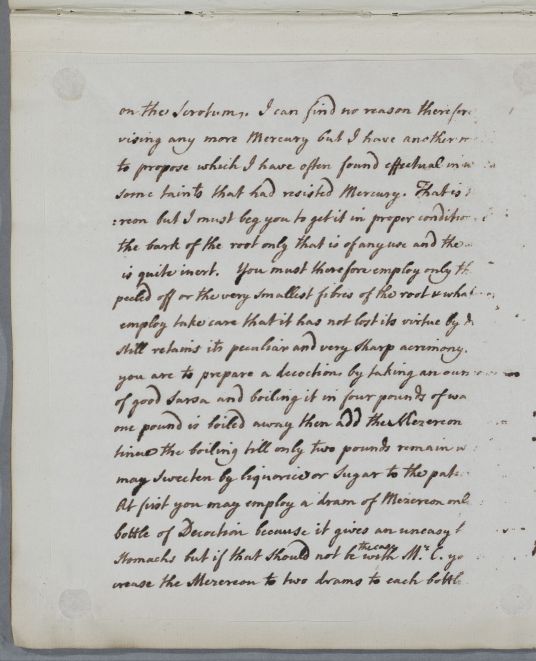 on the Scrotum. I can find no reason therefore
vising any more Mercury but I have another
to propose which I have often found effectual in
some taints that had resisted Mercury. That is
:reon but I must beg you to get it in proper condition
the bark of the root only that is of any use and the
is quite inert. You must therefore employ only th
peeled off or the very smallest fibres of the root & what
employ take care that it has not lost its virtue by
still retains its peculiar and very sharp acrimony.
you are to prepare a decoction by taking an oun
of good Sarsa and boiling it in four pounds of wa
one pound is boiled away then add the Mezereon
tinue the boiling till only two pounds remain
may sweeten by liquorice or Sugar to the pat
At first you may employ a dram of Mezereon
bottle of Decoction because it gives an uneasy
Stomachs but if that should not be the case with Mr. C. yo
crease the Mezereon to two drams to each bottle